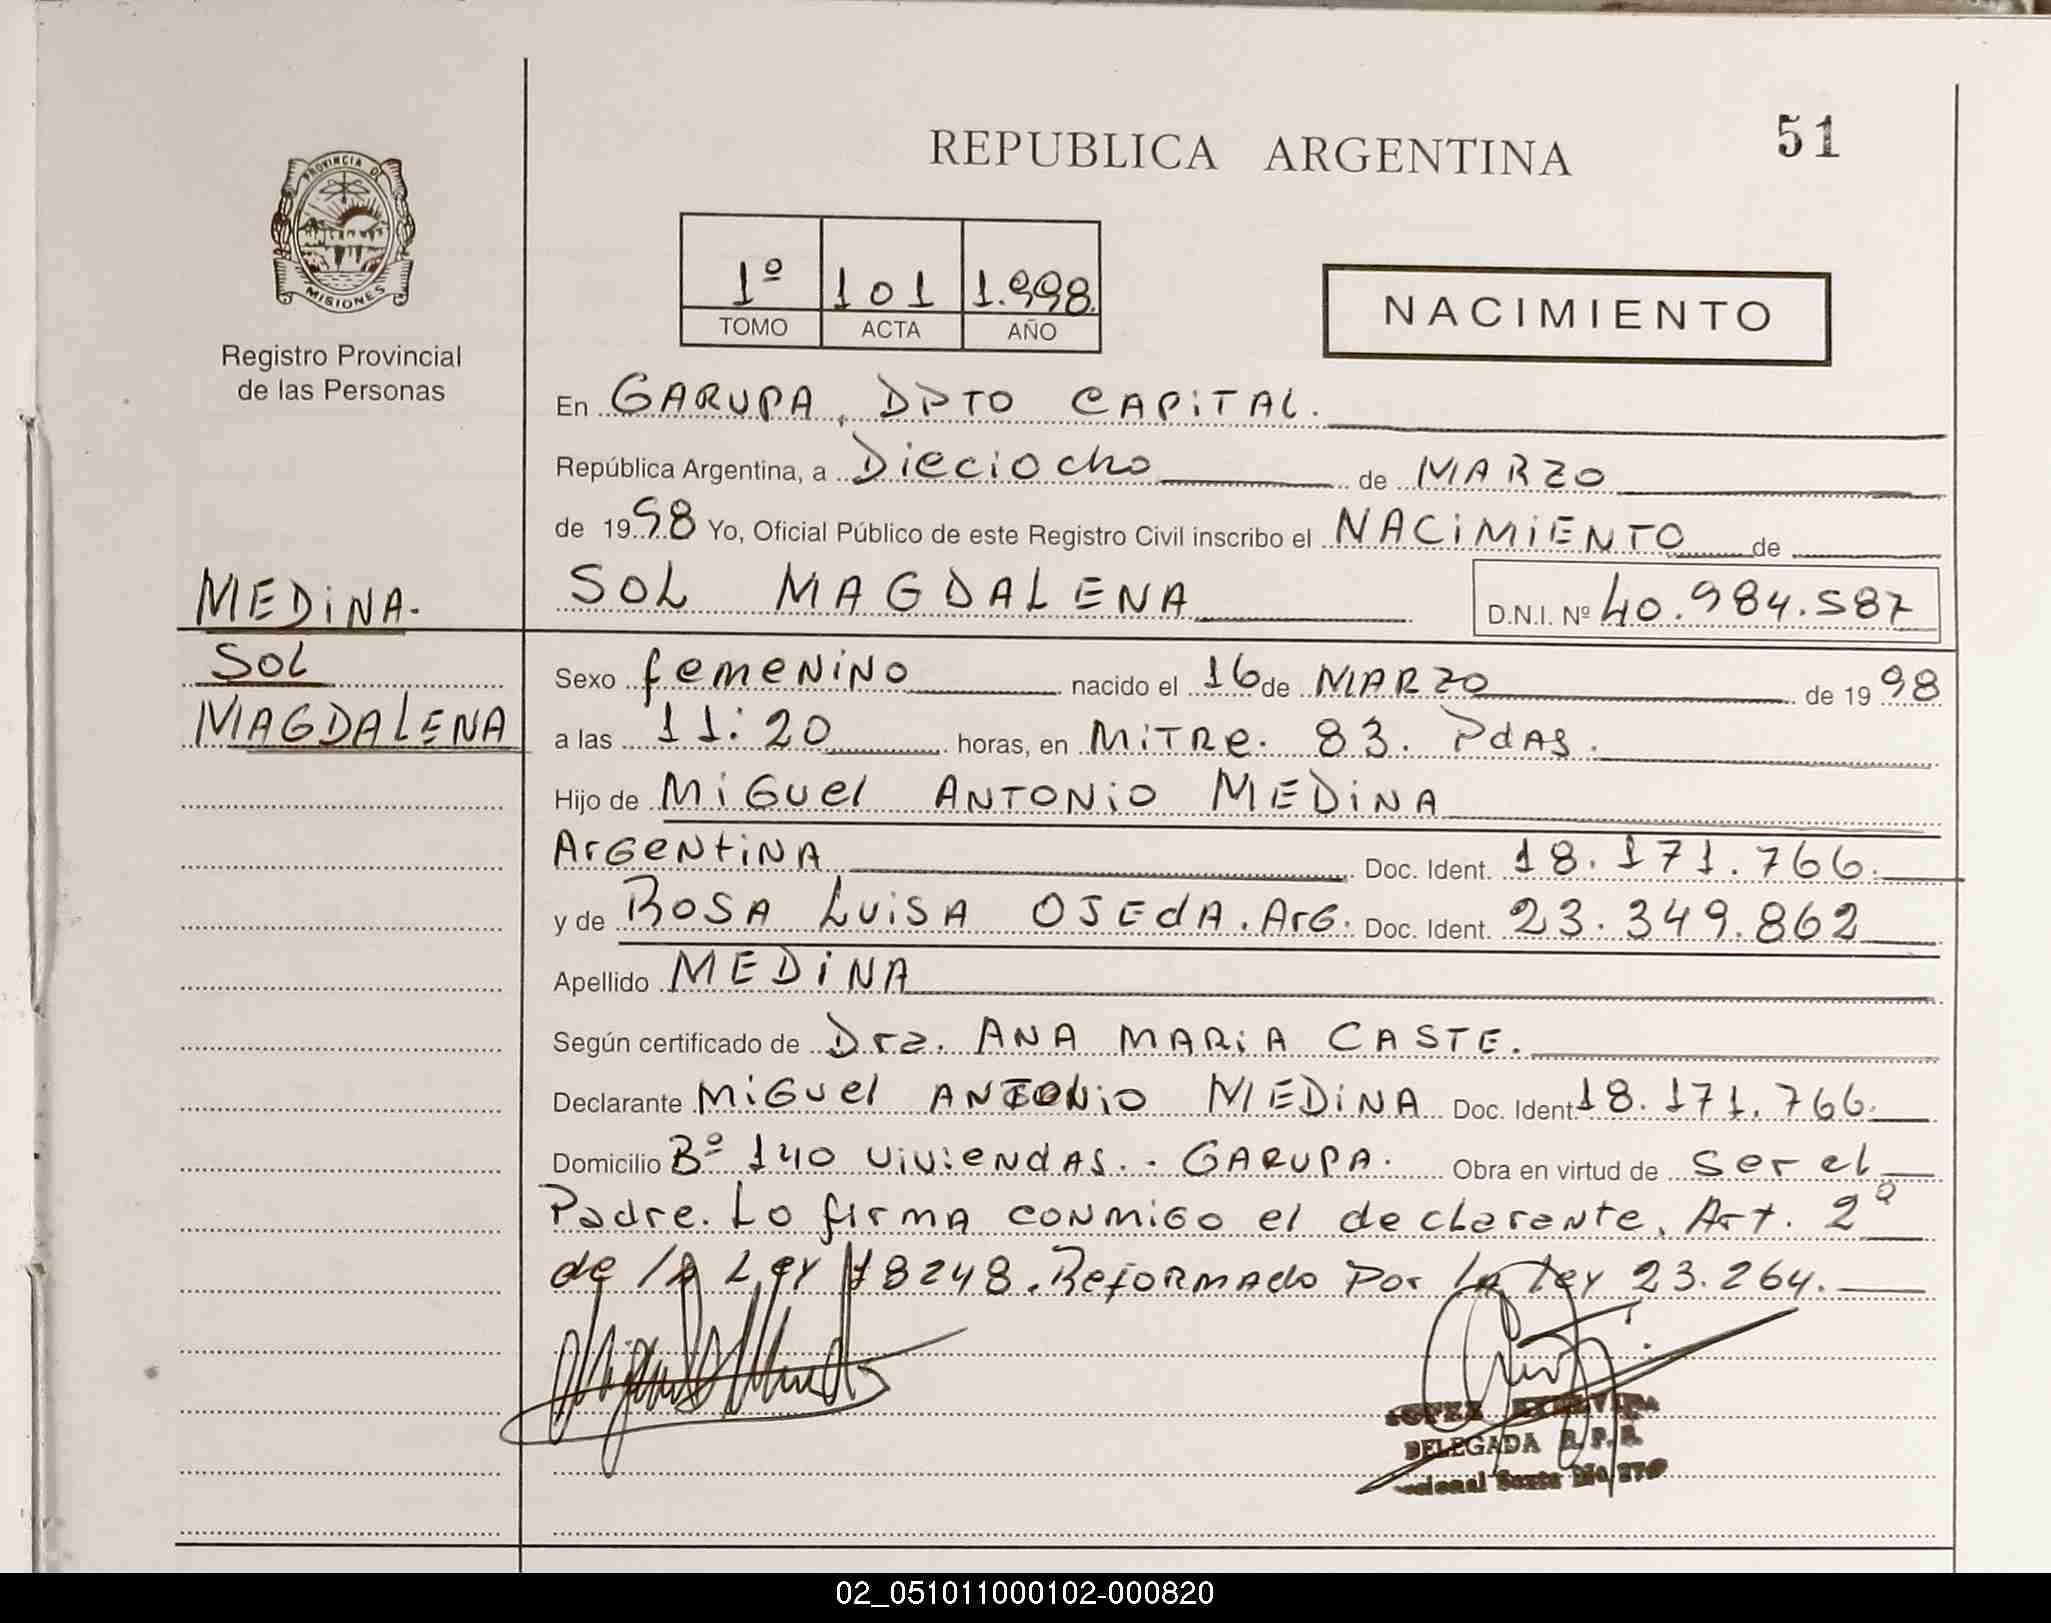 REPUBLICA ARGENTINA
51
PROVINCIA DE
MISIONES
Registro Provincial
de las Personas
1º 101 1.998.
TOMO ACTA AÑO
NACIMIENTO
En GARUPA, DPTO CAPITAL.
República Argentina, a Dieciocho de MARZO
de 1998 Yo, Oficial Público de este Registro Civil inscribo el NACIMIENTO de
MEDINA.
SOL MAGDALENA D.N.I. Nº 40.984.587
SOL
MAGDALENA
Sexo femenino nacido el 16 de MARZO de 1998
a las 11:20 horas, en MITRE. 83. Pdas.
Hijo de Miguel ANTONIO MEDINA
Argentina Doc. Ident. 18.171.766.
y de ROSA LUISA OJEDA. Arg. Doc. Ident. 23.349.862
Apellido MEDINA
Según certificado de Dra. ANA MARIA CASTE.
Declarante Miguel ANTONIO MEDINA Doc. Ident. 18.171.766.
Domicilio Bº 140 viviendas.. GARUPA. Obra en virtud de ser el
Padre. Lo firma conmigo el declarante. Art. 2º
de la Ley 18248. Reformado Por la Ley 23.264.
DELEGADA R. P. R.
02_051011000102-000820